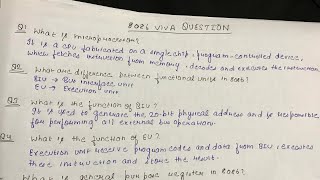 8086 VIVA QUESTION
Q1 What is microprocessor?
It is a CPU fabricated on a single chip, program-controlled device,
which fetches instruction from memory, decodes and executes the instruction
Q2 What are difference between functional units in 8086?
BIU → Bus interface unit
EU → Execution unit
Q3 What is the function of BIU?
It is used to generate the 20-bit physical address and is responsible
for performing all external bus operation.
Q4 What is the function of EU?
Execution unit receive program codes and data from BIU, executes
these instruction and store the result.
What is general purpose register in 8086?